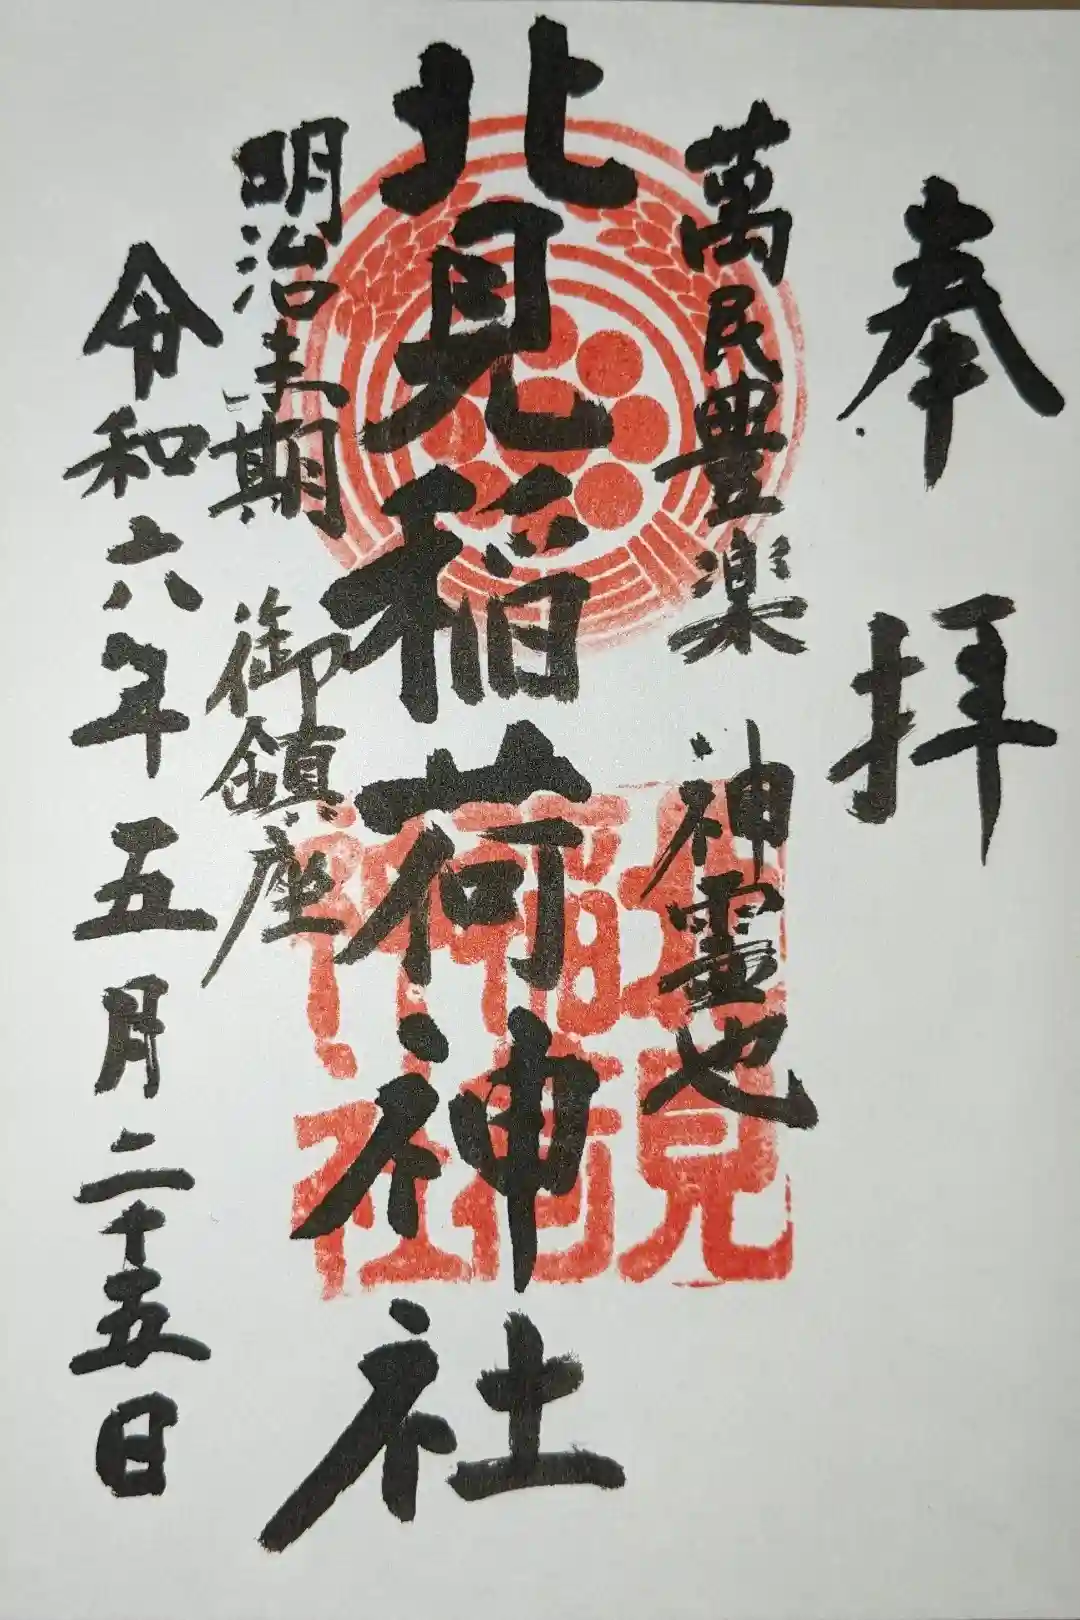 奉拝
萬民豊楽 神霊也
北見稲荷神社
明治主期 御鎮座
令和六年五月二十五日
北見稲荷神社